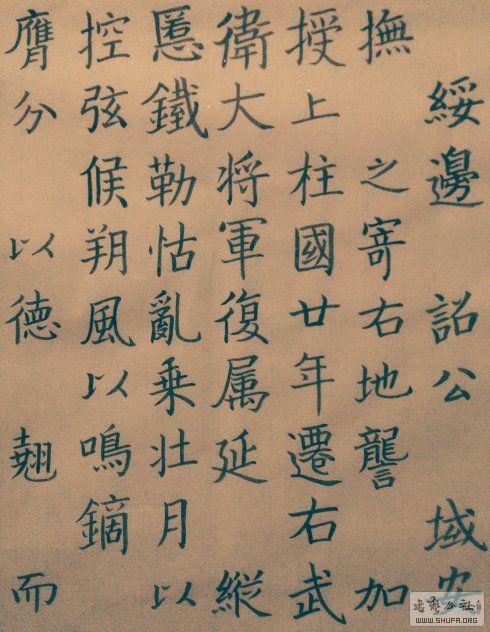 綏邊 詔公 域
撫 之寄右地讋 加
授上柱國廿年遷右武
衛大将軍復属延 縱
慝鐵勒怙亂乗壮月以
控弦候朔風以鳴鏑
膺分 以德 翹 而
WWW.SHUFA.ORG